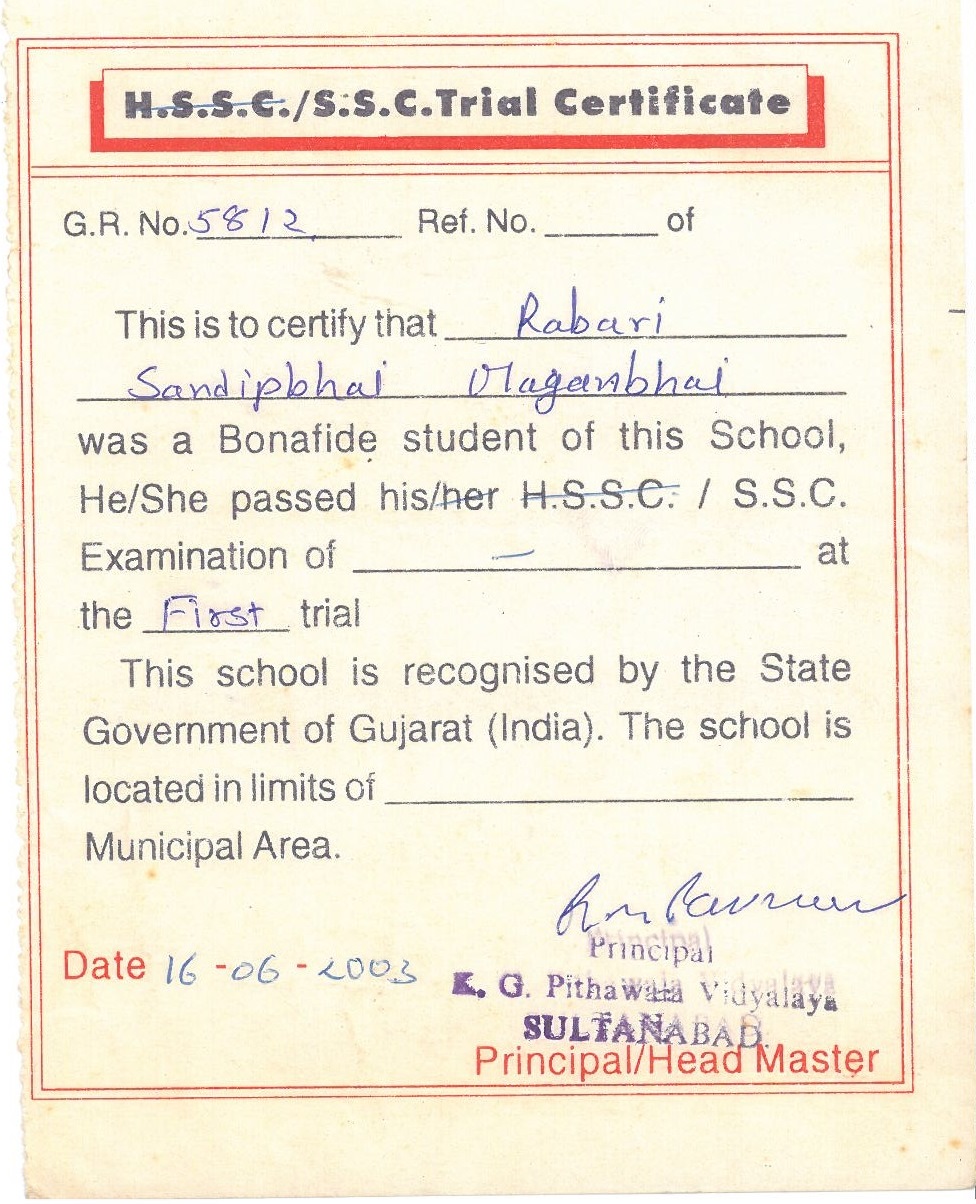 H.S.S.C./S.S.C.Trial Certificate
G.R. No. 5812 Ref. No. ______ of
This is to certify that Rabari
Sandipbhai Maganbhai
was a Bonafide student of this School,
He/She passed his/her H.S.S.C. / S.S.C.
Examination of — at
the First trial
This school is recognised by the State
Government of Gujarat (India). The school is
located in limits of ______
Municipal Area.
Principal
Date 16-06-2003
K. G. Pithawala Vidyalaya
SULTANABAD.
Principal/Head Master